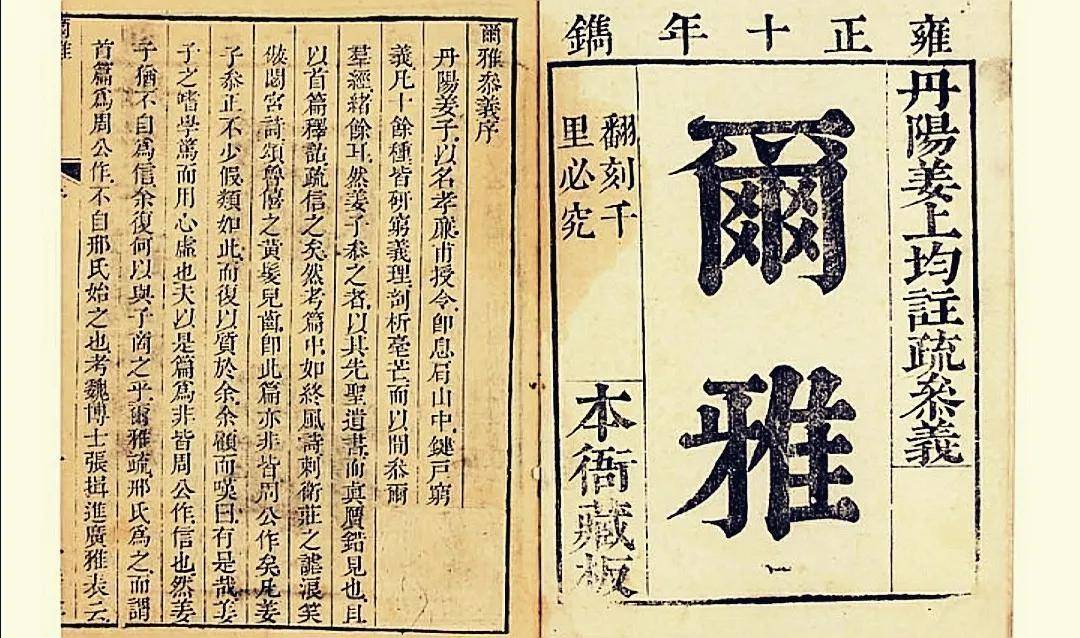 雍正十年鐫
丹陽姜上均註疏叅義
爾雅
翻刻千
里必究
本衙藏板
爾雅叅義序
丹陽姜子以名孝廉甫授令卽息肩山中鍵戸窮
義凡十餘種皆硏窮義理剖析毫芒而以閒叅爾
羣經緒餘耳然姜子叅之者以其先聖遺書而眞贗錯見也且
以首篇釋詁疏信之矣然考篇中如終風詩刺衛莊之謔浪笑
倣閟宮詩頌魯僖之黃髮兒齒卽此篇亦非皆周公作矣凡姜
子叅正不少假類如此而復以質於余余顧而嘆曰有是哉姜
子之嗜學篤而用心虛也夫以是篇爲非皆周公作信也然姜
子猶不自爲信余復何以與子商之乎爾雅疏邢氏爲之而謂
首篇爲周公作不自邢氏始之也考魏博士張揖進廣雅表云
爾雅